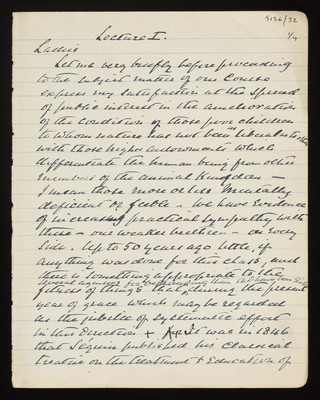 5136/32
1/4
Lecture I.
Ladies
Let me very briefly before proceeding
to the subject matter of our Course
express my satisfaction at the spread
of public interest in the amelioration
of the condition of those poor children
to whom nature has not been liberal
with those higher endowments which
differentiate the human being from other
members of the animal Kingdom —
I mean those more or less Mentally
deficient or feeble. We have evidence
of increasing practical sympathy with
these — our weaker brethren — on every
side. Up to 50 years ago little, if
anything was done for this class, and
there is something appropriate to the
fitness of things that during the present
year of grace which may be regarded
as the jubilee of systematic effort
in this direction + it was in 1846
that Séguin published his classical
treatise on the treatment & Education of